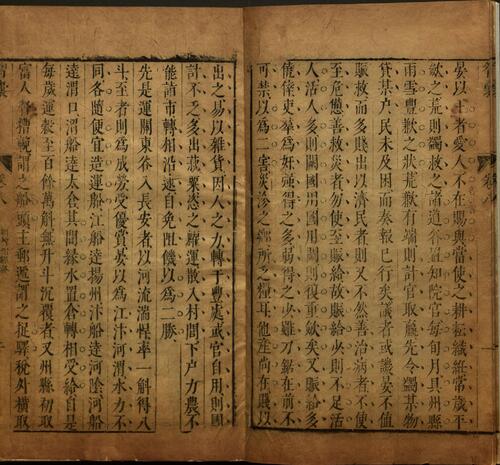 智囊
卷八
晏以王者愛人不在賜與當使之耕耘織絍常歲平
歛之荒則蠲救之諸道各置知院官每旬月具州縣
雨雪豐歉之狀荒歉有端則計官取贏先令蠲某物
貸某戶民未及困而奏報已行矣議者或譏晏不值
賑救而多賤出以濟民者則又不然善治病者不使
至危憊善救災者勿使至賑給故賑給少則不足活
人活人多則闕國用國用闕則復重歛矣又賑給多
僥倖吏羣為奸強得之多弱得之少雖刀鋸在前不
可禁以為二害災沴之鄉所乏糧耳他產尚在賤以
出之易以雜貨因人之力轉于豐處或官自用則國
計不乏多出菽粟恣之糶運散入村閭下戶力農不
能詣市轉相沿逮自免阻饑以為二勝
先是運關東谷入長安者以河流湍悍率一斛得八
斗至者則為成勞受優賞晏以為江汴河渭水力不
同各隨便宜造運船江船達揚州汴船達河陰河船
達渭口渭船達太倉其間緣水置倉轉相受給自是
每歲運穀至百餘萬斛無升斗沉覆者又州縣初取
富人督漕輓謂之船頭主郵遞謂之捉驛稅外橫取
智囊
卷八